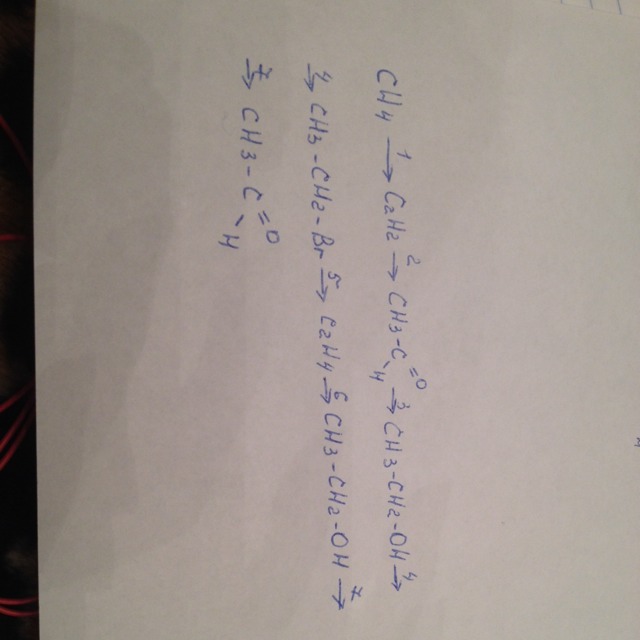 CH4 →1 C2H2 →2 CH3-C=O-H →3 CH3-CH2-OH →4
→4 CH3-CH2-Br →5 C2H4 →6 CH3-CH2-OH →7
→7 CH3-C=O-H